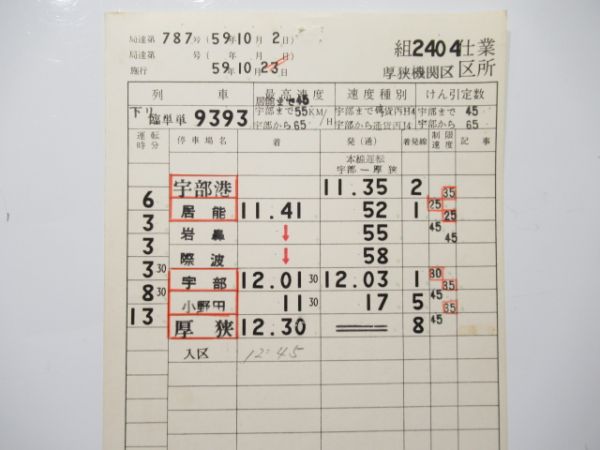 局達第 787号(59年10月2日)
局達第 号( 年 月 日) 組2404仕業
施行 59年10月23日 厚狭機関区 区所
列 車 最高速度 速度種別 けん引定数
下り 臨単単 9393 居能まで45 宇部まで55KM/H 宇部から65 宇部まで 宇部から 宇部まで45 宇部から65
運転時分 停車場名 着 発(通) 着発線 制限速度 記事
本線運転
宇部―厚狭
宇部港 11.35 2 35
6 居能 11.41 52 1 25 25
3 岩鼻 ↓ 55 45 45
3 際波 ↓ 58
3 30 宇部 12.01 30 12.03 1 30 35
8 30 小野田 11 30 17 5 45 35
13 厚狭 12.30 === 8 45
入区 12.45